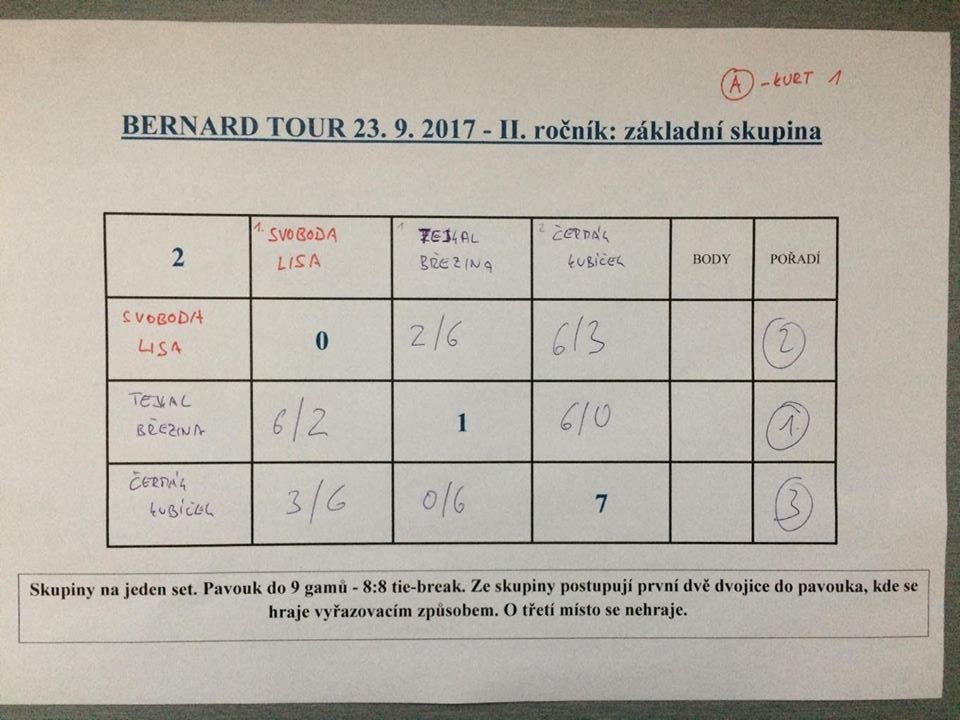 A - KURT 1
BERNARD TOUR 23. 9. 2017 - II. ročník: základní skupina
2
1. SVOBODA
LISA
1
BŘEZINA
2 ČERDÁK
KUBÍČEK
BODY
POŘADÍ
SVOBODA
LISA
0
2/6
6/3
2
BŘEZINA
6/2
1
6/0
1.
ČERDÁK
KUBÍČEK
3/6
0/6
7
3
Skupiny na jeden set. Pavouk do 9 gamů - 8:8 tie-break. Ze skupiny postupují první dvě dvojice do pavouka, kde se
hraje vyřazovacím způsobem. O třetí místo se nehraje.